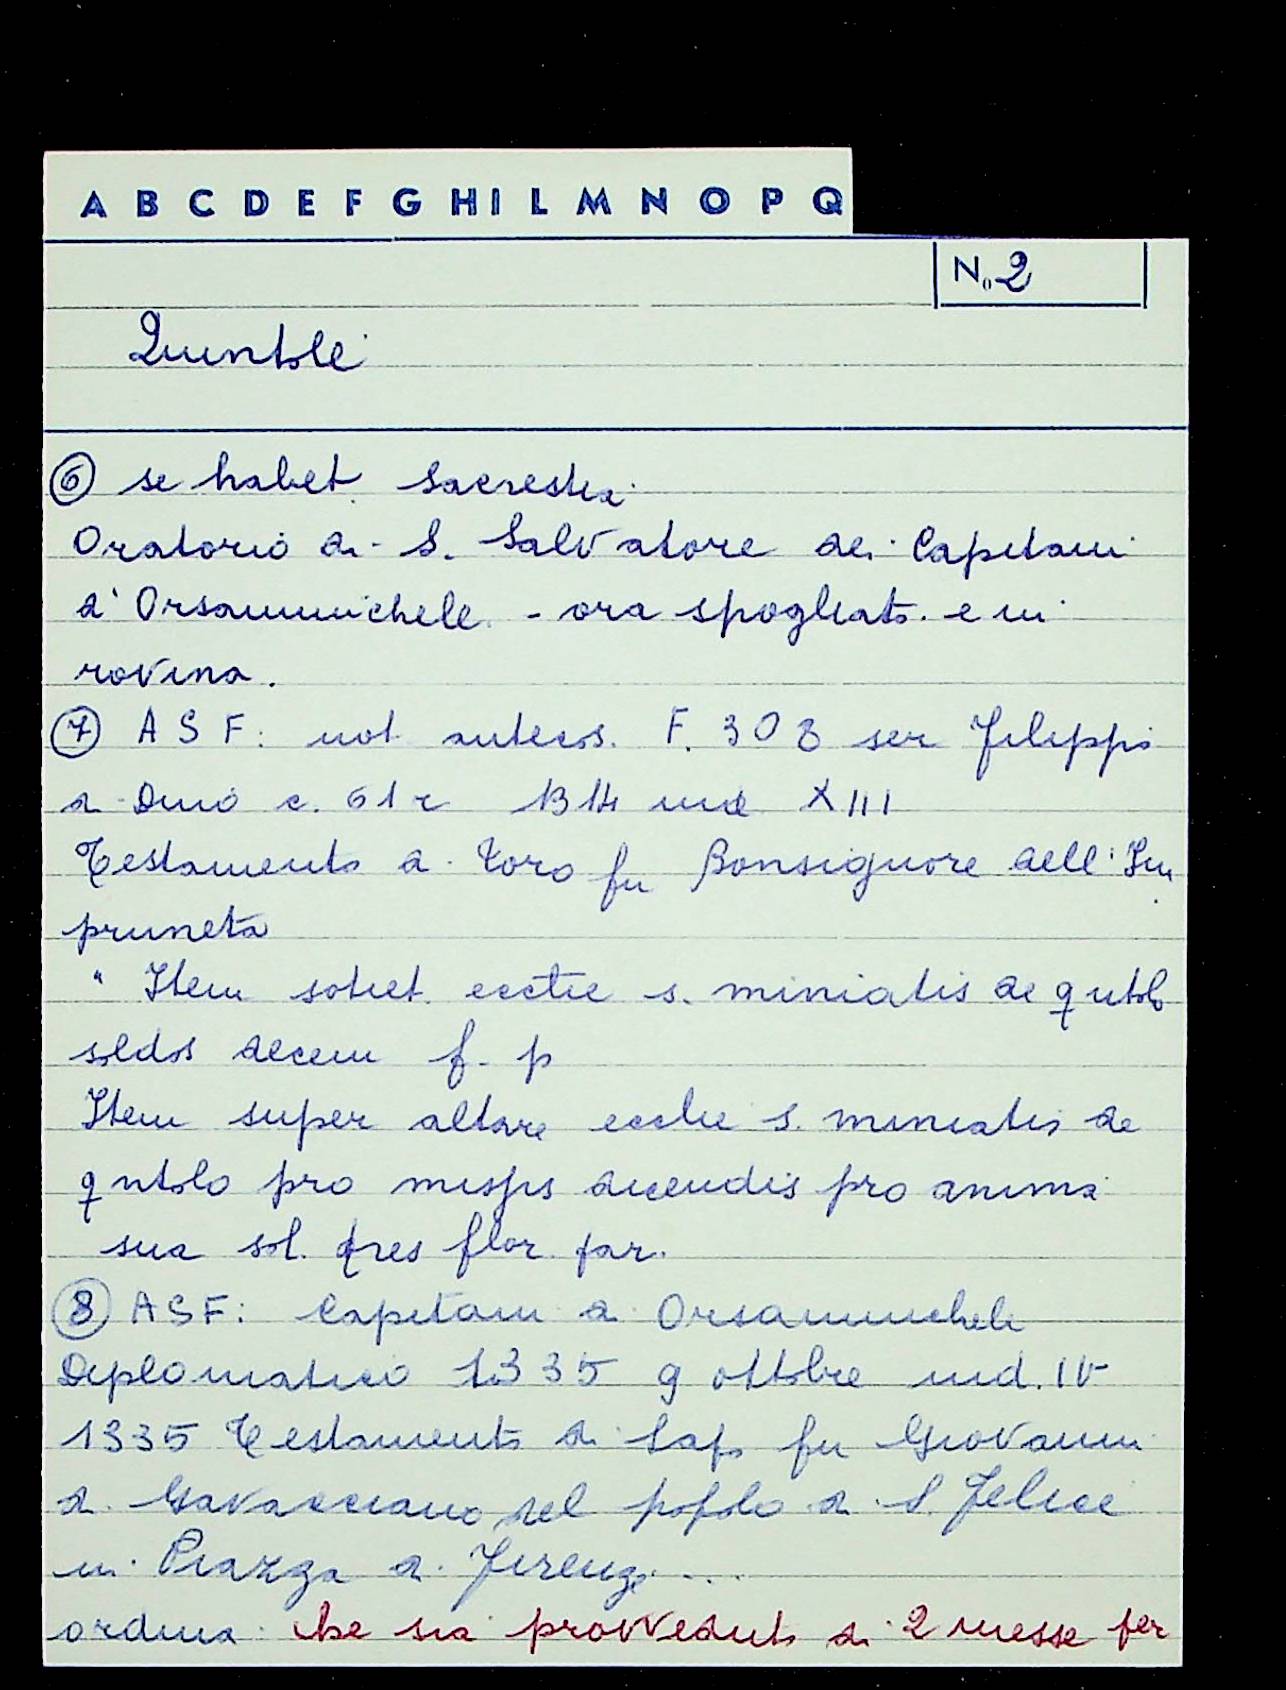 A B C D E F G H I L M N O P Q
N. 2
Quintole
6 se habet sacrestia
Oratorio di S. Salvatore dei Capitani
d'Orsammichele - ora spogliato e in
rovina.
7 A S F: not antecos. F. 303 ser Filippo
di Dino c. 61 r 1314 ind XIII
Testamento di Toro fu Bonsignore dell'Im
pruneta
" Item ecctie s. miniatis de qntolo
soldos decem f. p
Item super altare ecclie s. miniatis de
qntolo pro misis dicendis pro anima
sua sol. tres flor. par.
8 A S F: Capitani di Orsammichele
Diplomatico 1335 9 ottobre ind. IV
1335 Testamento di Lapo fu Giovanni
di Gavacciano del popolo di S. Felice
in Piazza di Firenze ...
ordina che sia provveduto di 2 messe per